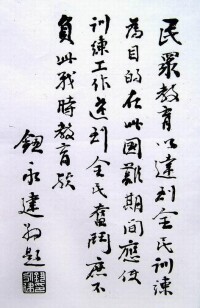 民眾教育以達到全民訓練
為目的在此國難期間應使
訓練工作達到全民奮鬥庶不
負此戰時教育歟
鈕永建敬題